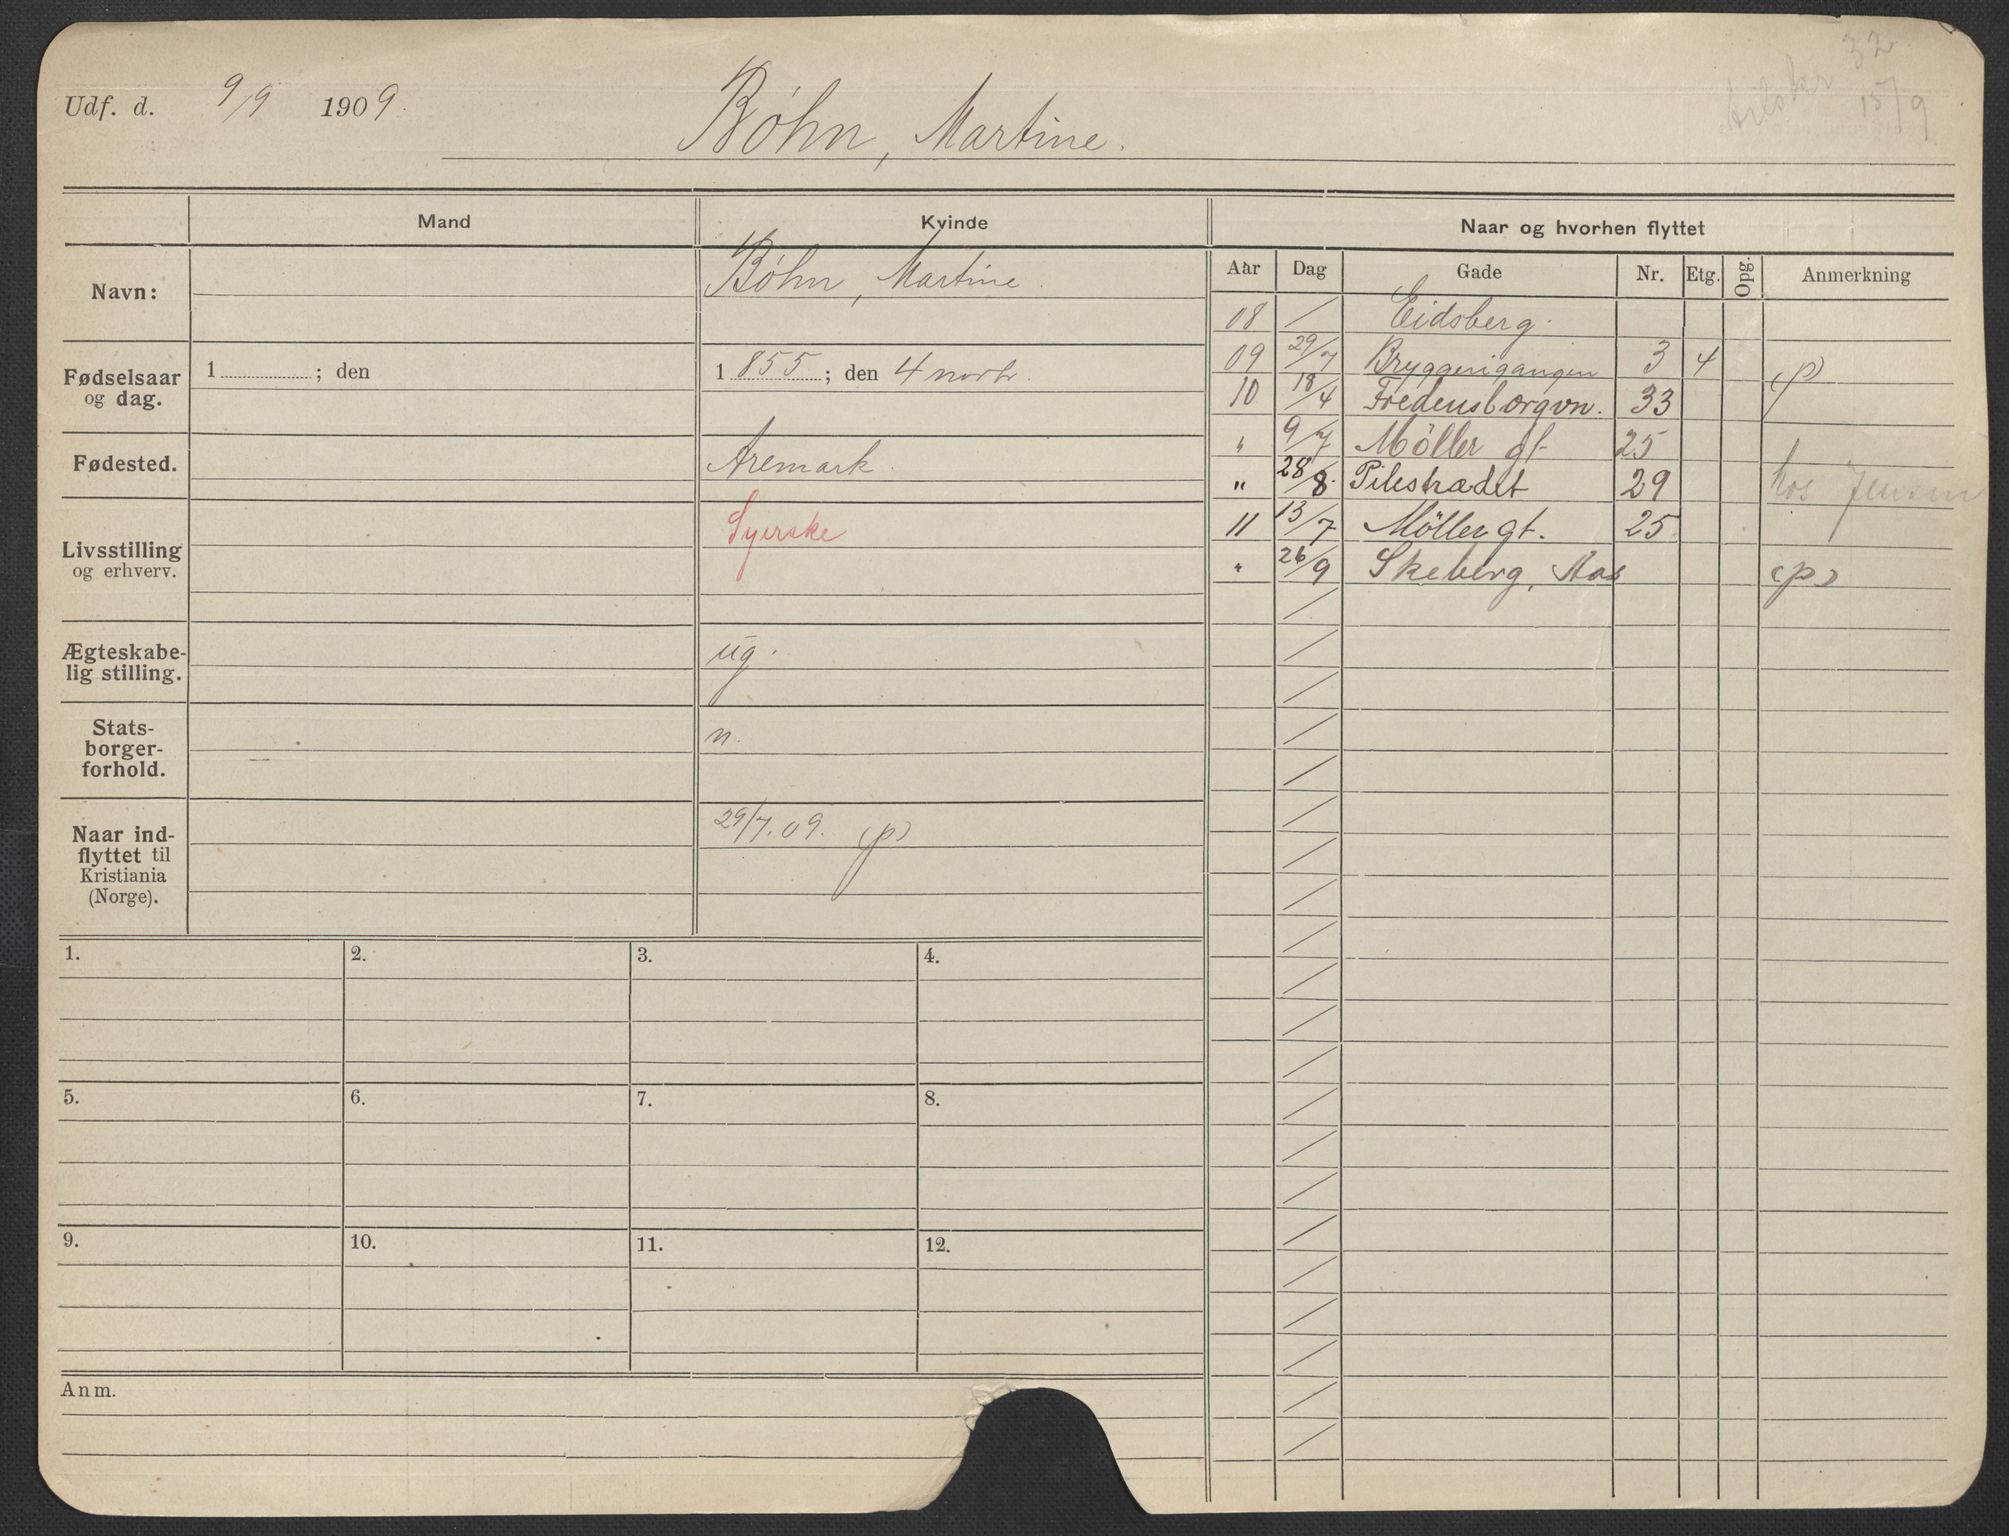 Udf. d. 9/9 1909.
Bøhn, Martine.
32
15/9
Mand
Kvinde
Naar og hvorhen flyttet
Navn:
Bøhn, Martine.
Aar Dag Gade Nr. Etg. Opg. Anmerkning
08 / Eidsberg.
09 29/7 Bryggerigangen 3 4 (p)
10 18/4 Fredensborgvn. 33
" 9/7 Möller gt. 25
" 28/8. Pilestrædet 29 hos Jensen
11 13/7 Möllergt. 25
" 26/9 Skeberg, Aas (p)
Fødselsaar
og dag.
1 ; den
1 855 ; den 4 novbr.
Fødested.
Aremark.
Livsstilling
og erhverv.
Syerske
Ægteskabe-
lig stilling.
ug.
Stats-
borger-
forhold.
n.
Naar ind-
flyttet til
Kristiania
(Norge).
29/7. 09. (p)
1. 2. 3. 4.
5. 6. 7. 8.
9. 10. 11. 12.
Anm.